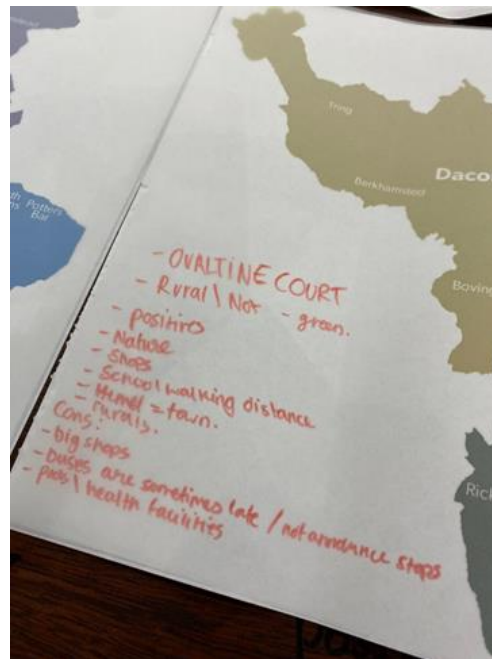 Tring
Berkhamsted
Daco
Bovin
Potters
Bar
Rick
- OVALTINE COURT
- Rural \ Not - green.
- positives
- Nature
- Shops
- School walking distance
- Hemel = town.
- rurals.
Cons:
- big shops
- buses are sometimes late / not announce stops
\ health facilities